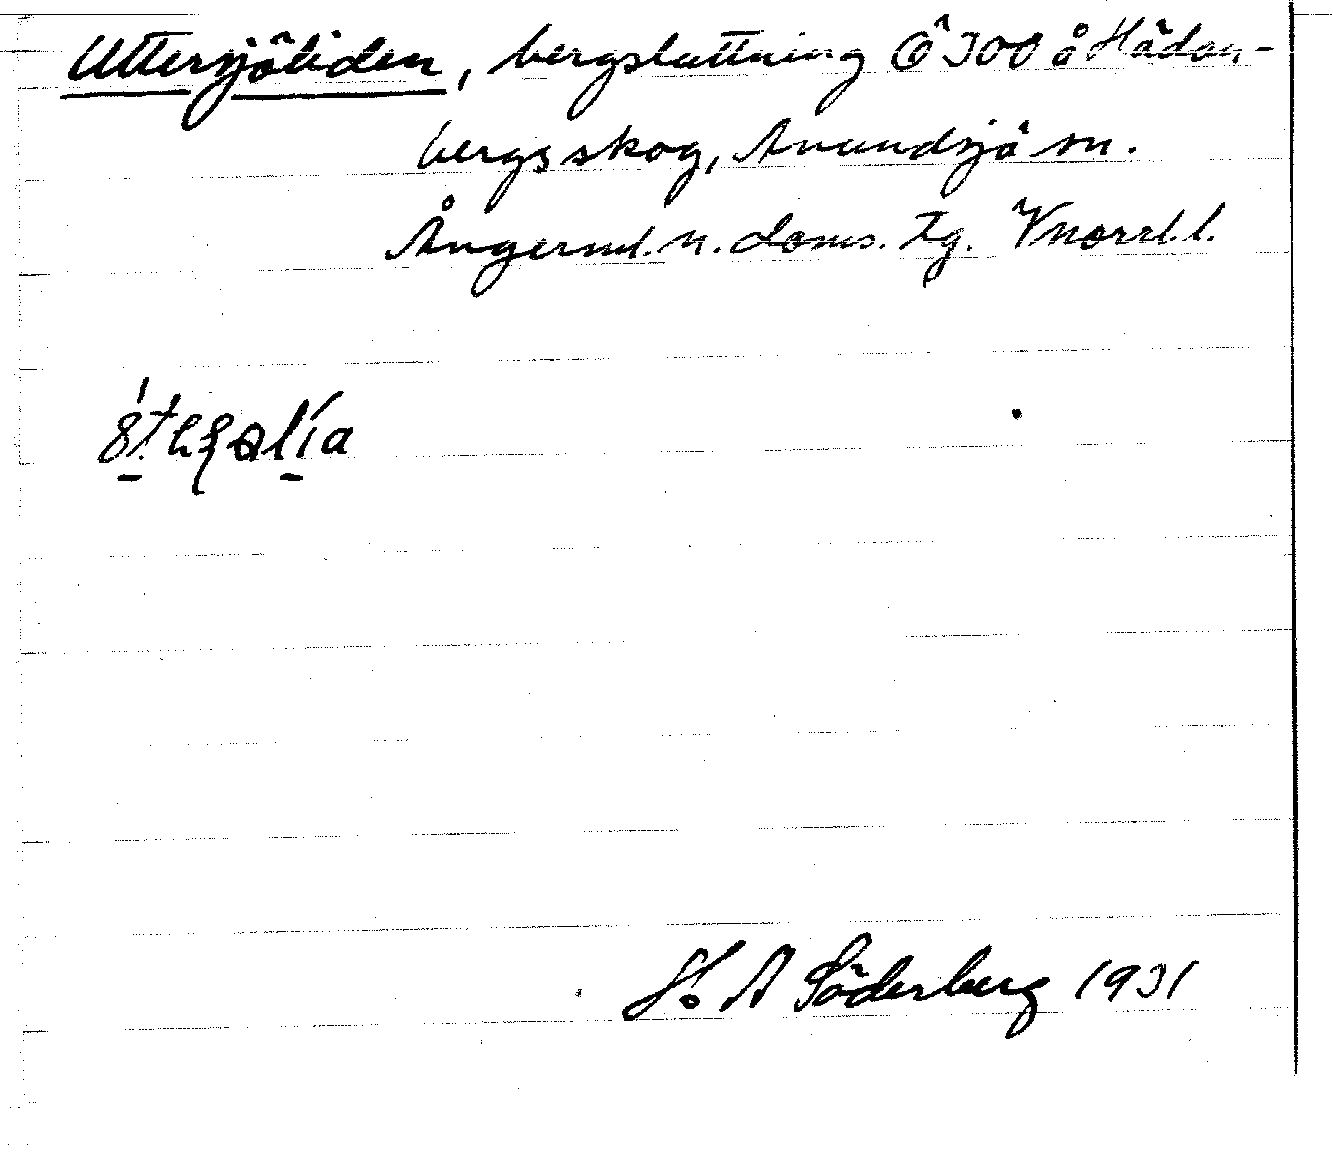 Uttersjöliden, bergsluttning Ö 300 å Hädan-
bergsskog, Anundsjö sn.
Ångerml. n. doms. tg. Vnorrl. l.
H. A Söderberg 1931